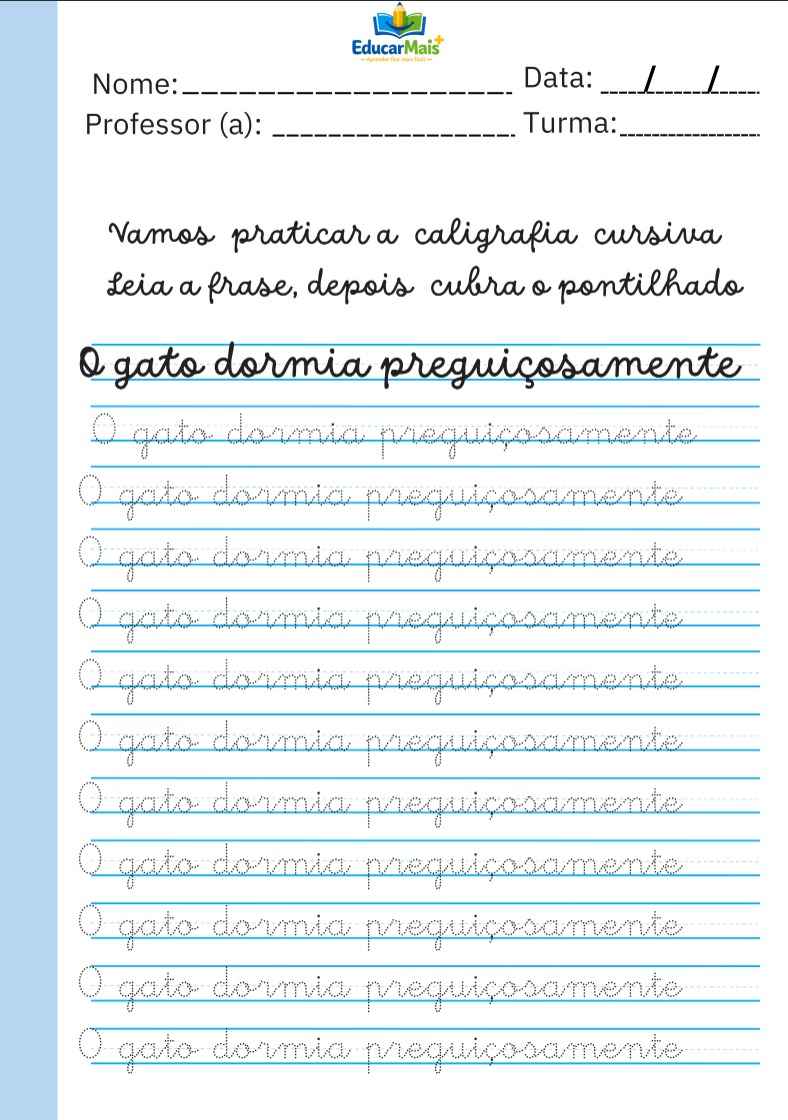 EducarMais+
Nome: Data: / /
Professor (a): Turma:
Vamos praticar a caligrafia cursiva
Leia a frase, depois cubra o pontilhado
O gato dormia preguiçosamente
O gato dormia preguiçosamente
O gato dormia preguiçosamente
O gato dormia preguiçosamente
O gato dormia preguiçosamente
O gato dormia preguiçosamente
O gato dormia preguiçosamente
O gato dormia preguiçosamente
O gato dormia preguiçosamente
O gato dormia preguiçosamente
O gato dormia preguiçosamente
O gato dormia preguiçosamente